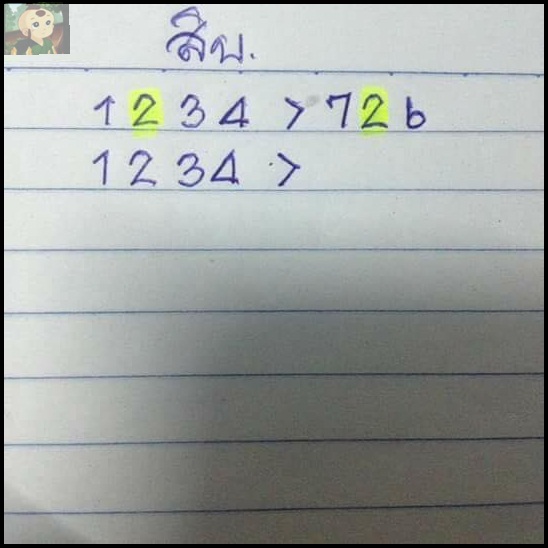 สิบ.
1 2 3 4 > 7 2 6
1 2 3 4 >